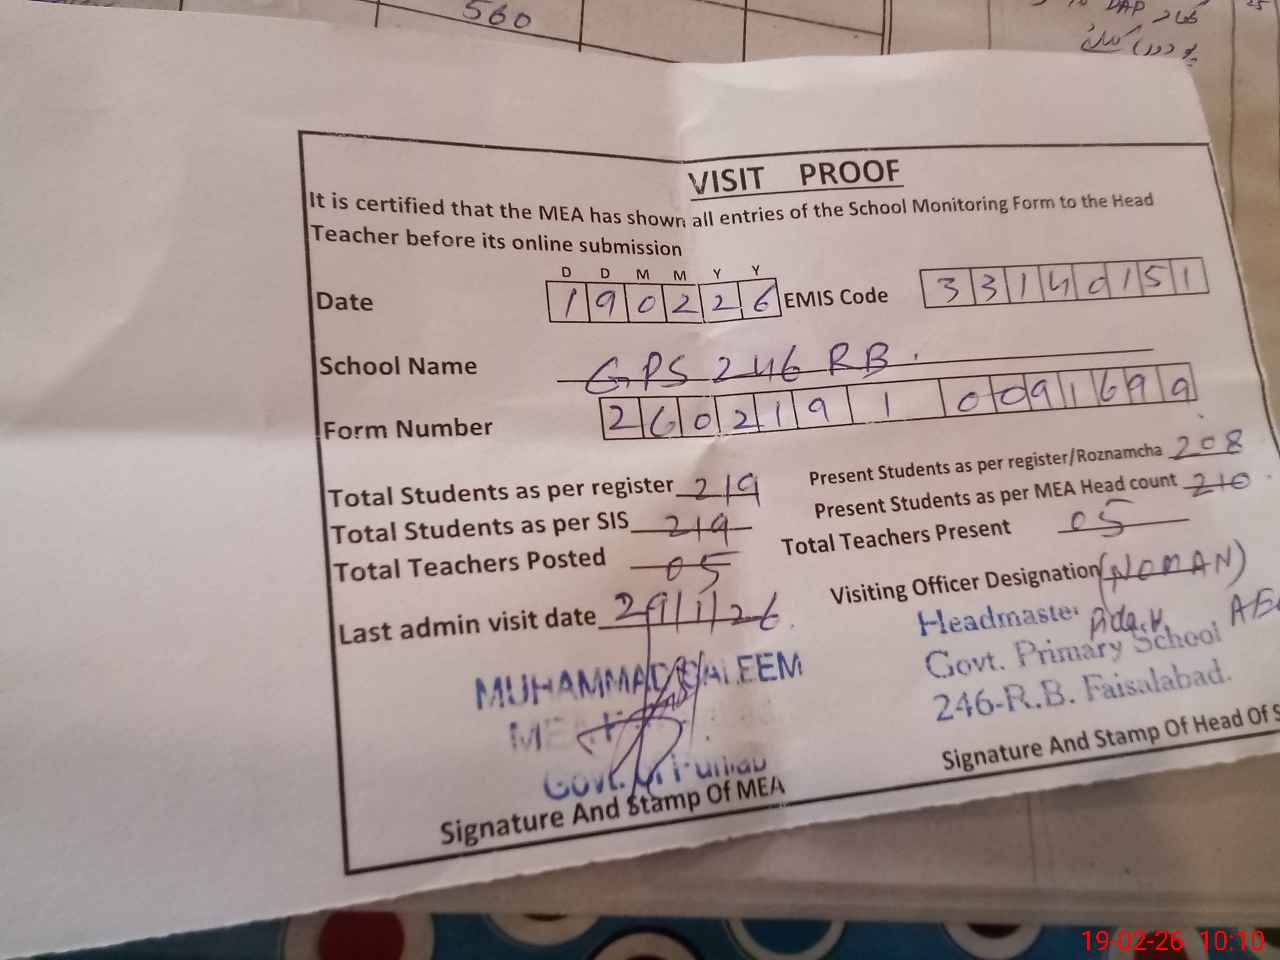 560
DAP
VISIT PROOF
It is certified that the MEA has shown all entries of the School Monitoring Form to the Head
Teacher before its online submission
D D M M Y Y
Date 190226 EMIS Code 33140151
School Name GPS 246 RB.
Form Number 260219 1 0091699
Total Students as per register 219 Present Students as per register/Roznamcha 208
Total Students as per SIS 219 Present Students as per MEA Head count 210
Total Teachers Posted 05 Total Teachers Present 05
Last admin visit date 29/1/26. Visiting Officer Designation (NOMAN)
Headmaster
Govt. Primary School
246-R.B. Faisalabad.
MUHAMMAD SALEEM
MEA
Govt. of Punjab
Signature And Stamp Of MEA Signature And Stamp Of Head Of S
19-02-26 10:10